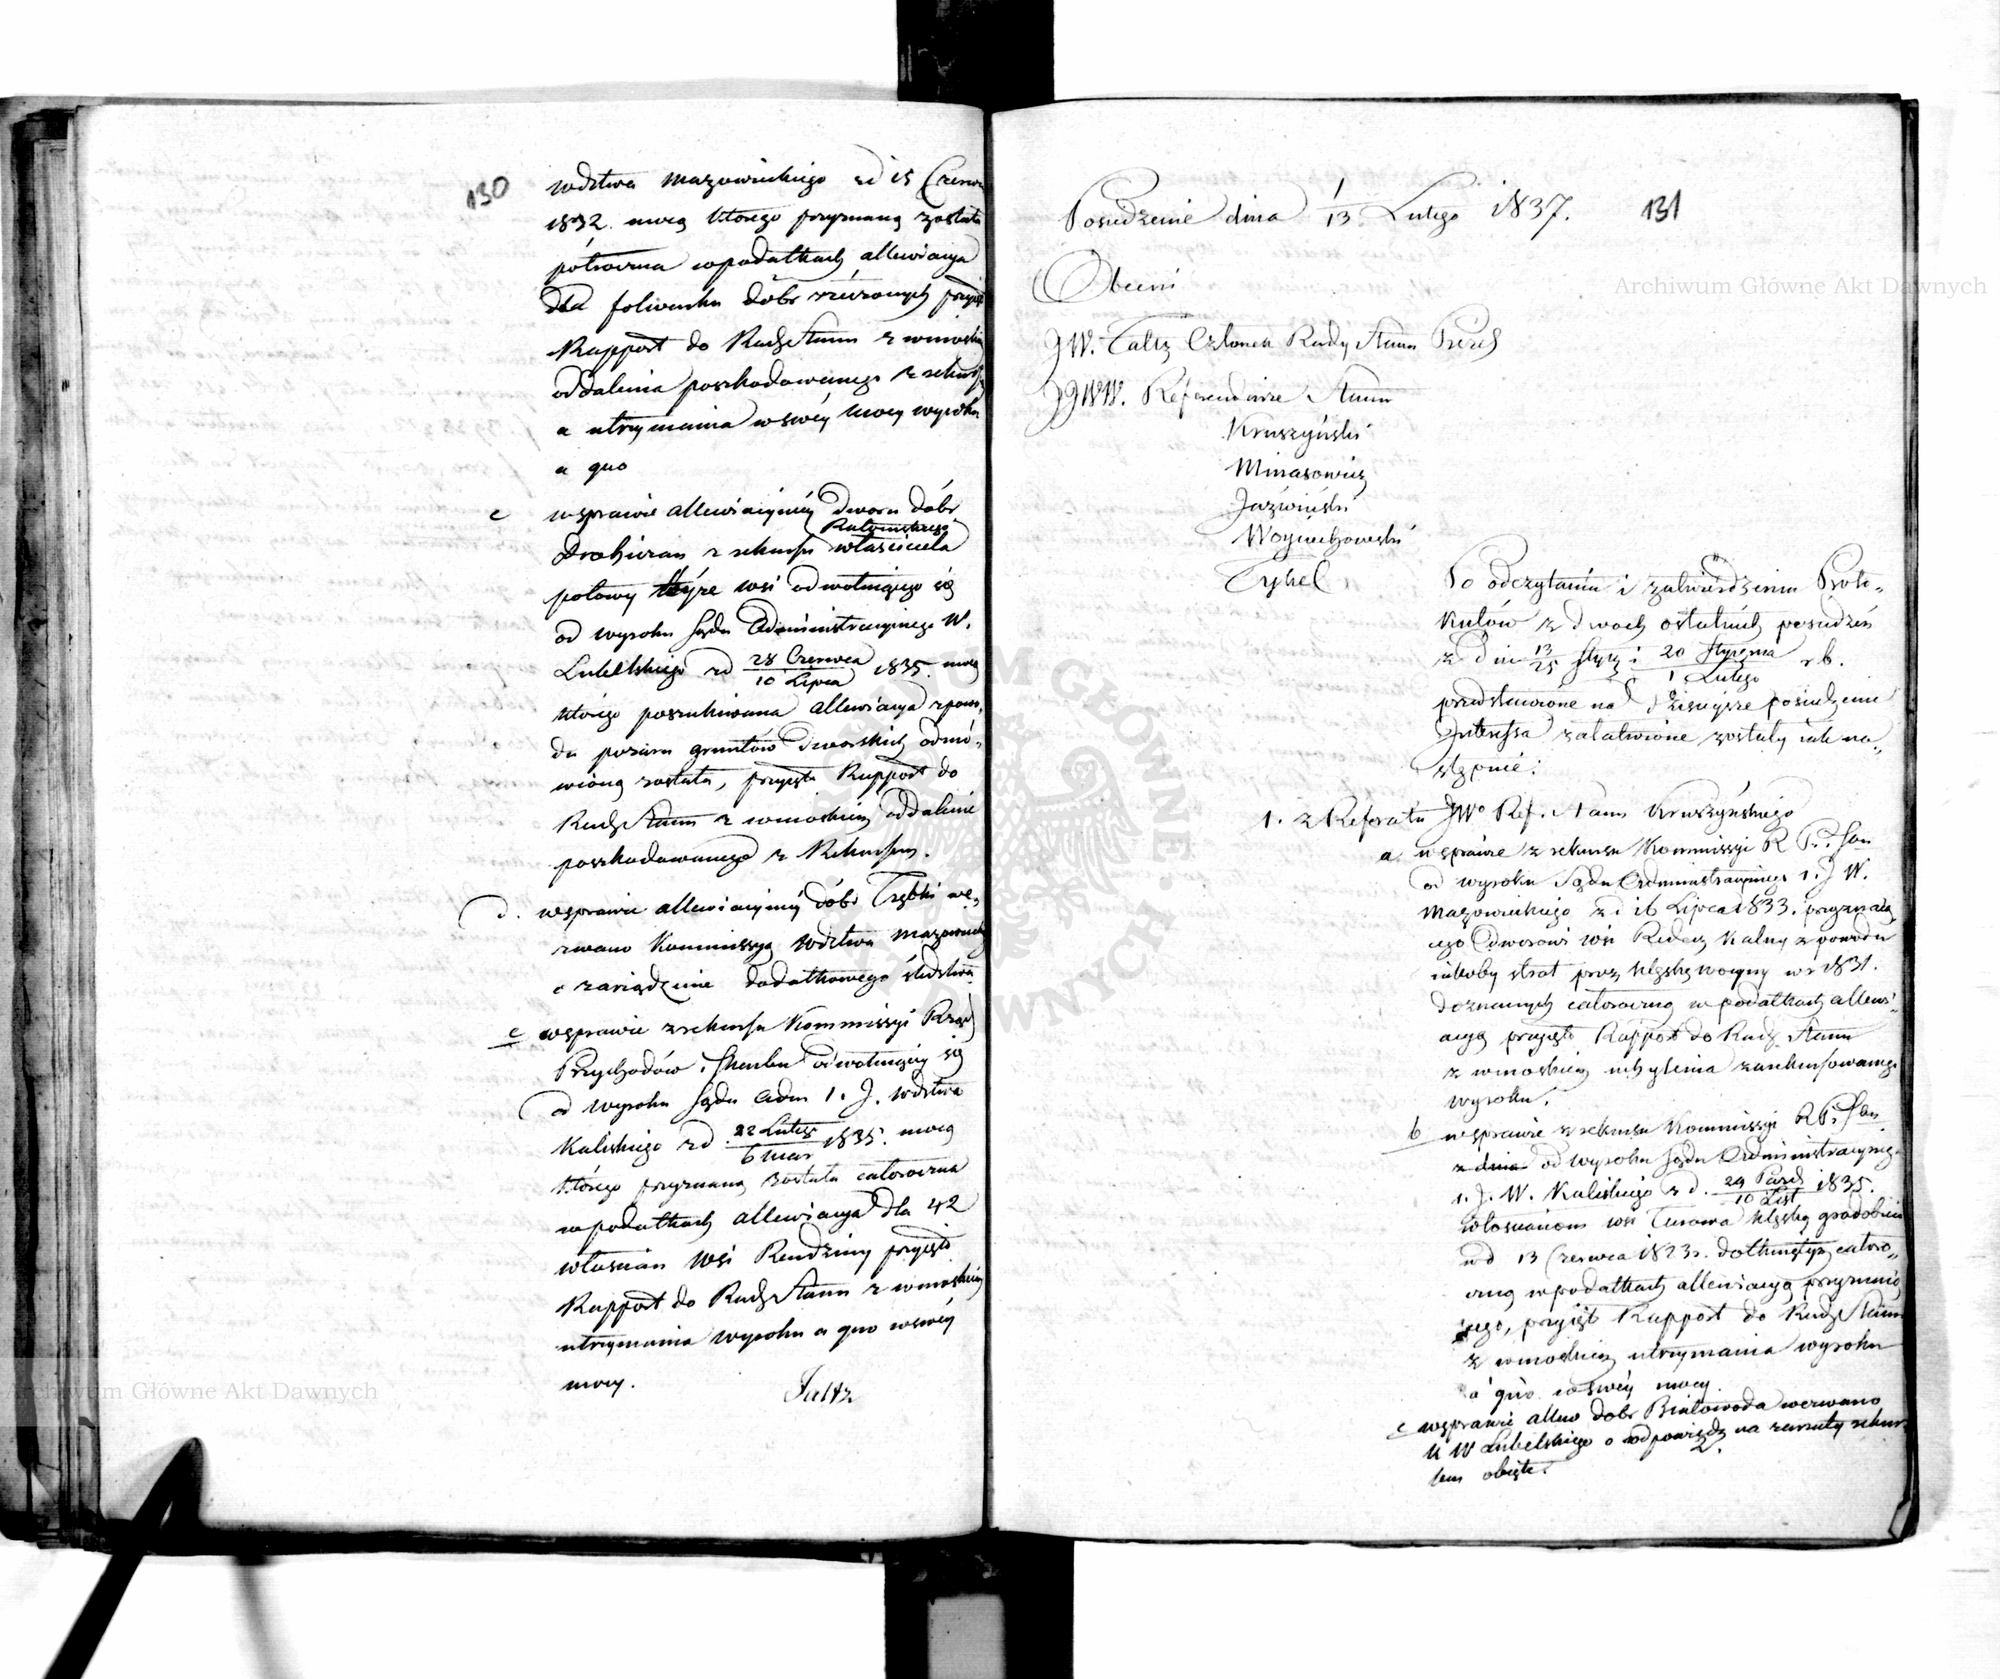 130
wdztwa Mazowieckiego z d 15 Czerwca
1832. mocą którego przyznaną została
półroczna w podatkach allewiacya
dla folwarku dóbr rzeczonych przyjęto
Rapport do Rady Stanu z wnioskiem
oddalenia poszkodowanego z rekursu
a utrzymania w swéy mocy wyroku
a quo
c w sprawie allewiacyjnéy Dworu dóbr
Drohiczan z rekursu właściciela
połowy téyże wsi odwołującego się
od wyroku Sądu Administracyjnego W.
Lubelskiego z d 28 Czerwca / 10 Lipca 1835. mocą
którego poszukiwana allewiacya z powo„
du pożaru gruntów Dworskich odmó„
wioną została, przyjęto Rapport do
Rady Stanu z wnioskiem oddalenie
poszkodowanego z Rekursem.
d. w sprawie allewiacyjnéy dóbr Trębki we„
zwano Kommissyą Wdztwa Mazowieckiego
o zarządzenie dodatkowego śledztwa
e w sprawie z rekursu Kommissyi Rząd
Przychodów i Skarbu odwołującéy się
od wyroku Sądu Adm 1. J. wdztwa
Kaliskiego z d. 22 Lutego / 6 Mar 1835. mocą
którego przyznaną została całoroczna
w podatkach allewiacya dla 42
włościan wsi Rendziny przyjęto
Rapport do Rady Stanu z wnioskiem
utrzymania wyroku a quo w swéy
mocy.
Faltz
131
Posiedzenie dnia 1/13 Lutego 1837.
Obecni
JW. Faltz Członek Rady Stanu Prezd
JJWW. Referendarze Stanu
Kruszyński
Minasowicz
Jaźwiński
Woyciechowski
Tykel
Po odczytaniu i zatwierdzeniu Proto„
kułów z dwóch ostatnich posiedzeń
z dni 13/25 Stycz i 20 Stycznia / 1 Lutego r b.
przedstawione na dzisieysze posiedzenie
Interessa załatwione zostały iak na„
stępuie:
1. z Referatu JWo Ref. Stanu Kruszyńskiego
a w sprawie z rekursu Kommissyi R P. i Skar
od wyroku Sądu Administracyjnego 1. J W.
Mazowieckiego z d 16 Lipca 1833. przyznaią
cego Dworowi wsi Kalny z powodu
iakoby strat przez klęskę wojny w r 1831.
doznanych całoroczną w podatkach allewi„
acyą przyjęto Rapport do Rady Stanu
z wnioskiem uchylenia zarekursowanego
wyroku.
b w sprawie z rekursu Kommissyi R P. i Skar
z dnia od wyroku Sądu Administracyjnego
1. J. W. Kaliskiego z d. 29 Paźd / 10 List 1835.
włościanom wsi Turowa klęską gradobicia
w d 13 Czerwca 1823 r. dotkniętym całoro„
czną w podatkach allewiacyą przyznaią
cego, przyjęto Rapport do Rady Stanu
z wnioskiem utrzymania wyroku
a quo w swéy mocy.
c w sprawie allew dóbr Białowoda wezwano
K W Lubelskiego o odpowiedź na zarzuty rekur
sem objęte.
Archiwum Główne Akt Dawnych
Archiwum Główne Akt Dawnych